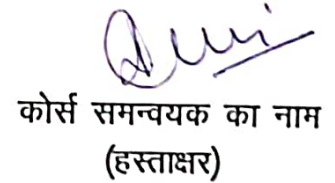 कोर्स समन्वयक का नाम
(हस्ताक्षर)